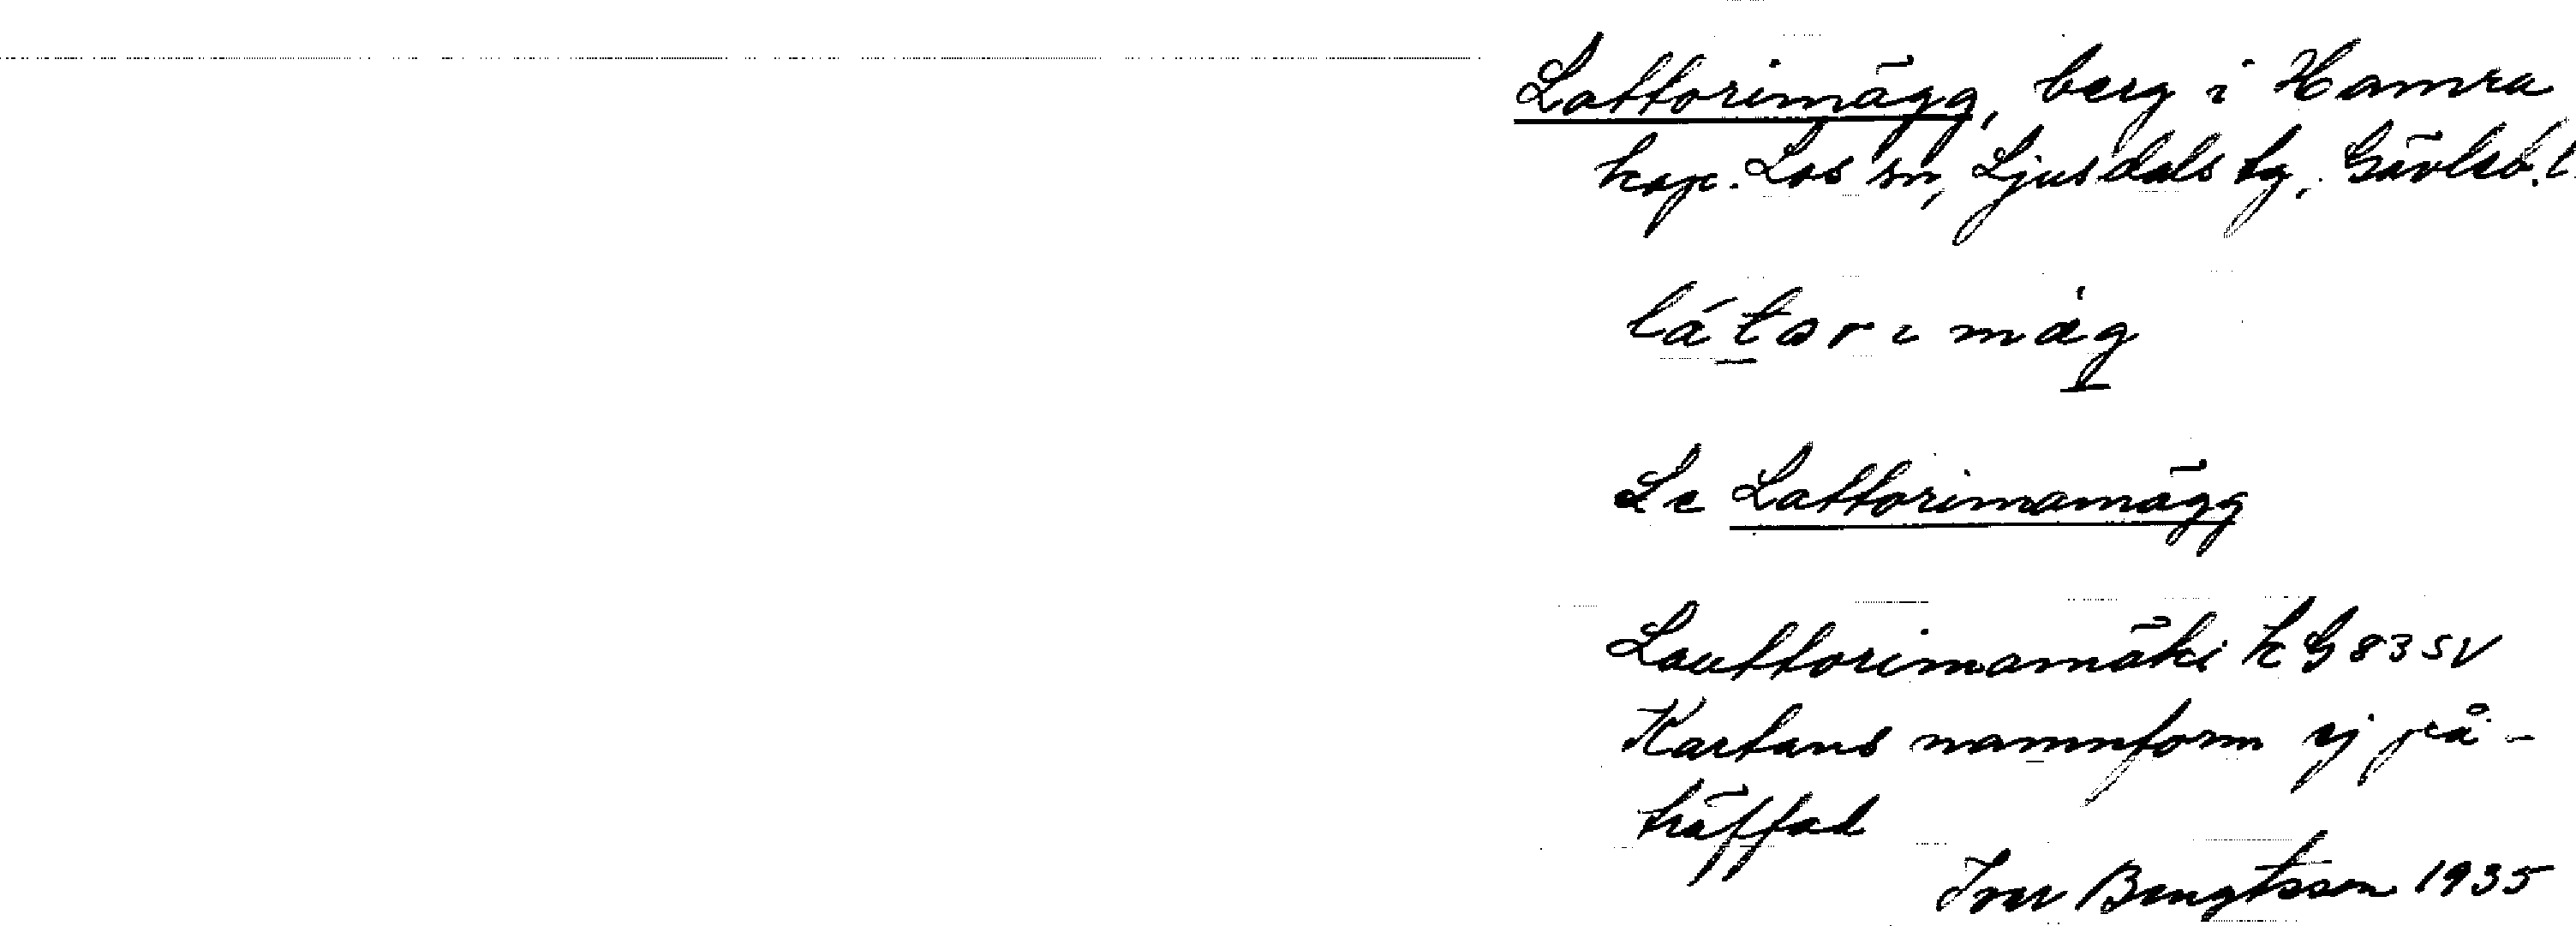 Lattorimägg, berg i Hamra
kap. Los sn, Ljusdals tg, Gävleb. l.
látorimäg
Se Lattorimamägg
Lauttorimamäki k G 83 SV
Kartans namnform ej på-
träffad
Ivar Bengtsson 1935